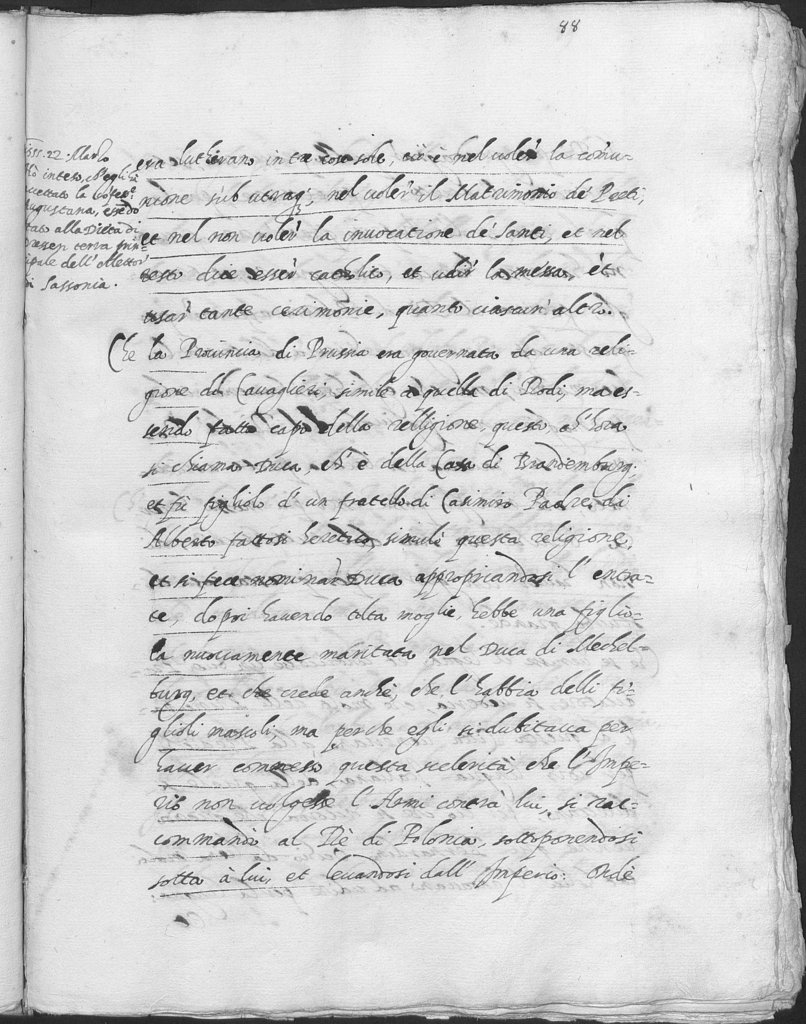 88
1555. 22. Marzo
Hò inteso, ch'egli hà
accettato la Confess.e
Augustana, essendo
stato alla Dieta di
Dresen terra prin-
cipale dell'Elettor
di Sassonia.
era lutherano in tre cose sole, ciò è nel voler la com̄u-
nione sub utraq3, nel voler il Matrimonio de' Preti,
et nel non voler la invocatione de' Santi, et nel
resto dice esser catholico, et udir la messa, et
usar tante cerimonie, quanto ciascun'altro.
Che la Provincia di Prussia era governata da una reli-
gione del Cavaglieri, simile à quella di Rodi, mà es-
sendo fatto capo della relligione, questo ch'hora
si chiama Duca, ch'è della Casa di Brandemburg.
et fù figliolo d'un fratello di Casimiro Padre di
Alberto fattosi heretico, simulò questa religione,
et si fece nominar Duca appropriandosi l'entra-
te, dopoi havendo tolta moglie, hebbe una figlio-
la nuovamente maritata nel Duca di Mechel-
burg, et che crede anche, che l'habbia delli fi-
glioli mascoli, ma perche egli si dubitava per
haver commesso questa scelerità, che l'Impe-
rio non volgesse l'Armi contra lui, si rac-
commandò al Rè di Polonia, sottoponendosi
sotto à lui, et levandosi dall'Imperio: Onde